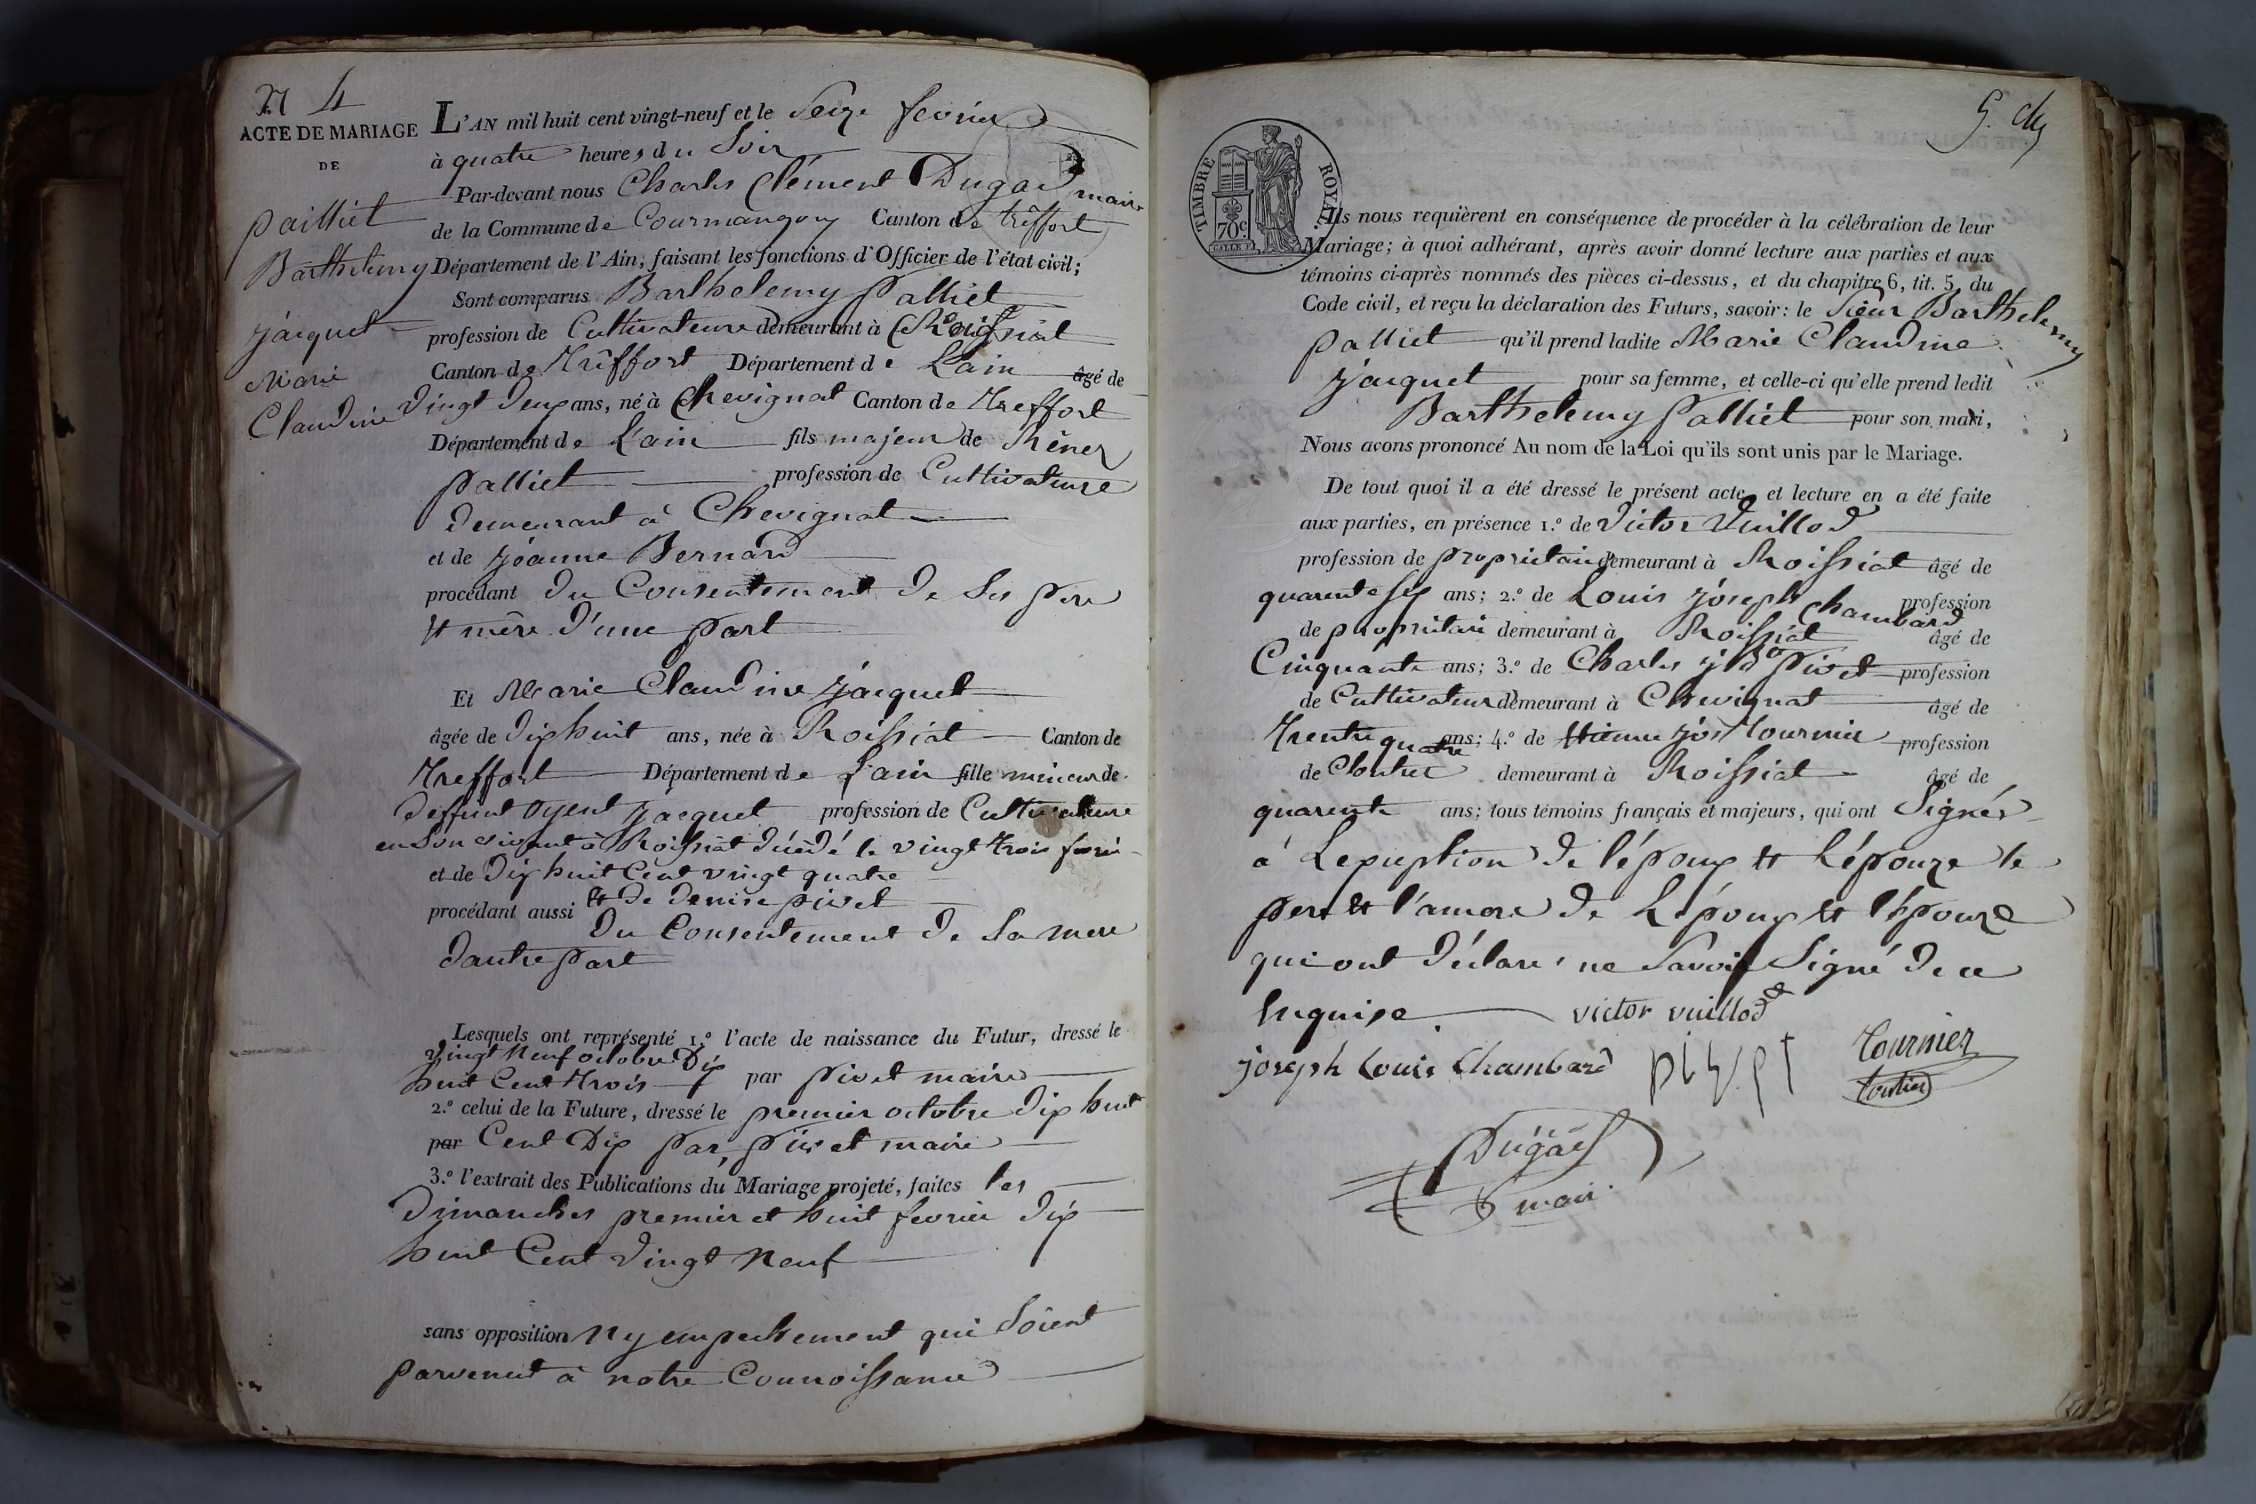 N 4
ACTE DE MARIAGE
DE
Pailliet
Barthelemy
Jacquet
Marie
Claudine
L'AN mil huit cent vingt-neuf et le Seize fevrier
à quatre heures du Soir
Par-devant nous Charles Clément Dugad maire
de la Commune de Courmangoux Canton de tréffort
Département de l'Ain, faisant les fonctions d'Officier de l'état civil;
Sont comparus Barthelemy Palliet
profession de Cultivateure demeurant à Roissiat
Canton de Tréffort Département de Lain âgé de
Vingt Deux ans, né à Chevignat Canton de Treffort
Département de L'ain fils majeur de Rênez
Palliet profession de Cultivateure
demeurant à Chevignat
et de Jéanne Bernard
procédant du Consentement de Ses pere
et mère d'une part
Et Marie Claudine Jacquet
âgée de Dix huit ans, née à Roissiat Canton de
Treffort Département de L'ain fille mineur de
deffunt oyent Jacquet profession de Cultivateure
en Son vivant à Roissiat décédé le vingt trois fevrié
et de Dix huit Cent vingt quatre
procédant aussi et de denise pivet
Du Consentement de Sa mere
dautre part
Lesquels ont représenté 1.º l'acte de naissance du Futur, dressé le
vingt neuf octobre Dix
huit Cent trois par Pivet maire
2.º celui de la Future, dressé le premier octobre dix huit
par Cent Dix par Pivet maire
3.º l'extrait des Publications du Mariage projeté, faites les
Dimanches premier et huit fevrier dix
huit Cent vingt neuf
sans opposition ny empechement qui Soient
parvenut à notre Connoissance
TIMBRE ROYAL
70 c
Ils nous requièrent en conséquence de procéder à la célébration de leur
Mariage; à quoi adhérant, après avoir donné lecture aux parties et aux
témoins ci-après nommés des pièces ci-dessus, et du chapitre 6, tit. 5, du
Code civil, et reçu la déclaration des Futurs, savoir: le Sieur Barthelemy
Palliet qu'il prend ladite Marie Claudine
Jacquet pour sa femme, et celle-ci qu'elle prend ledit
Barthelemy Palliet pour son mari,
Nous avons prononcé Au nom de la Loi qu'ils sont unis par le Mariage.
De tout quoi il a été dressé le présent acte, et lecture en a été faite
aux parties, en présence 1.º de Victor Vuillod
profession de proprietaire demeurant à Roissiat âgé de
quarente six ans; 2.º de Louis Jóseph Chambard profession
de proprietaire demeurant à Roissiat âgé de
Cinquante ans; 3.º de Charles J Bte Pivet profession
de Cultivateur demeurant à Chevignat âgé de
Trente quatre ans; 4.º de Etienne Jos Tournier profession
de Cloutier demeurant à Roissiat âgé de
quarente ans; tous témoins français et majeurs, qui ont Signés
à Lexception de l'époux et L'épouze le
pere et l'amere de L'époux et l'épouze
qui ont déclaré ne Savoir Signé de ce
Enquise victor vuillod
joseph Louis Chambard pivet tournier
Dugad
maire